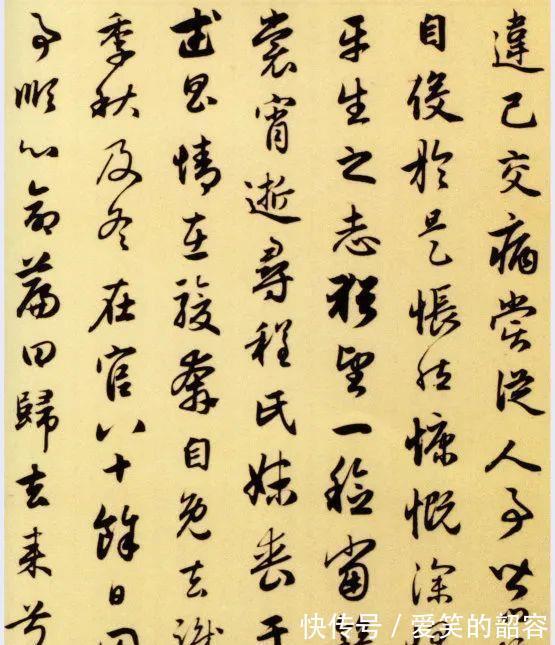 違己交病嘗從人事皆口
自役於是悵然慷慨深
平生之志猶望一稔當
裳宵逝尋程氏妹喪于
武昌情在駿奔自免去職
季秋及冬在官八十餘日因
事順心命篇曰歸去来兮
快传号 / 爱笑的韶容